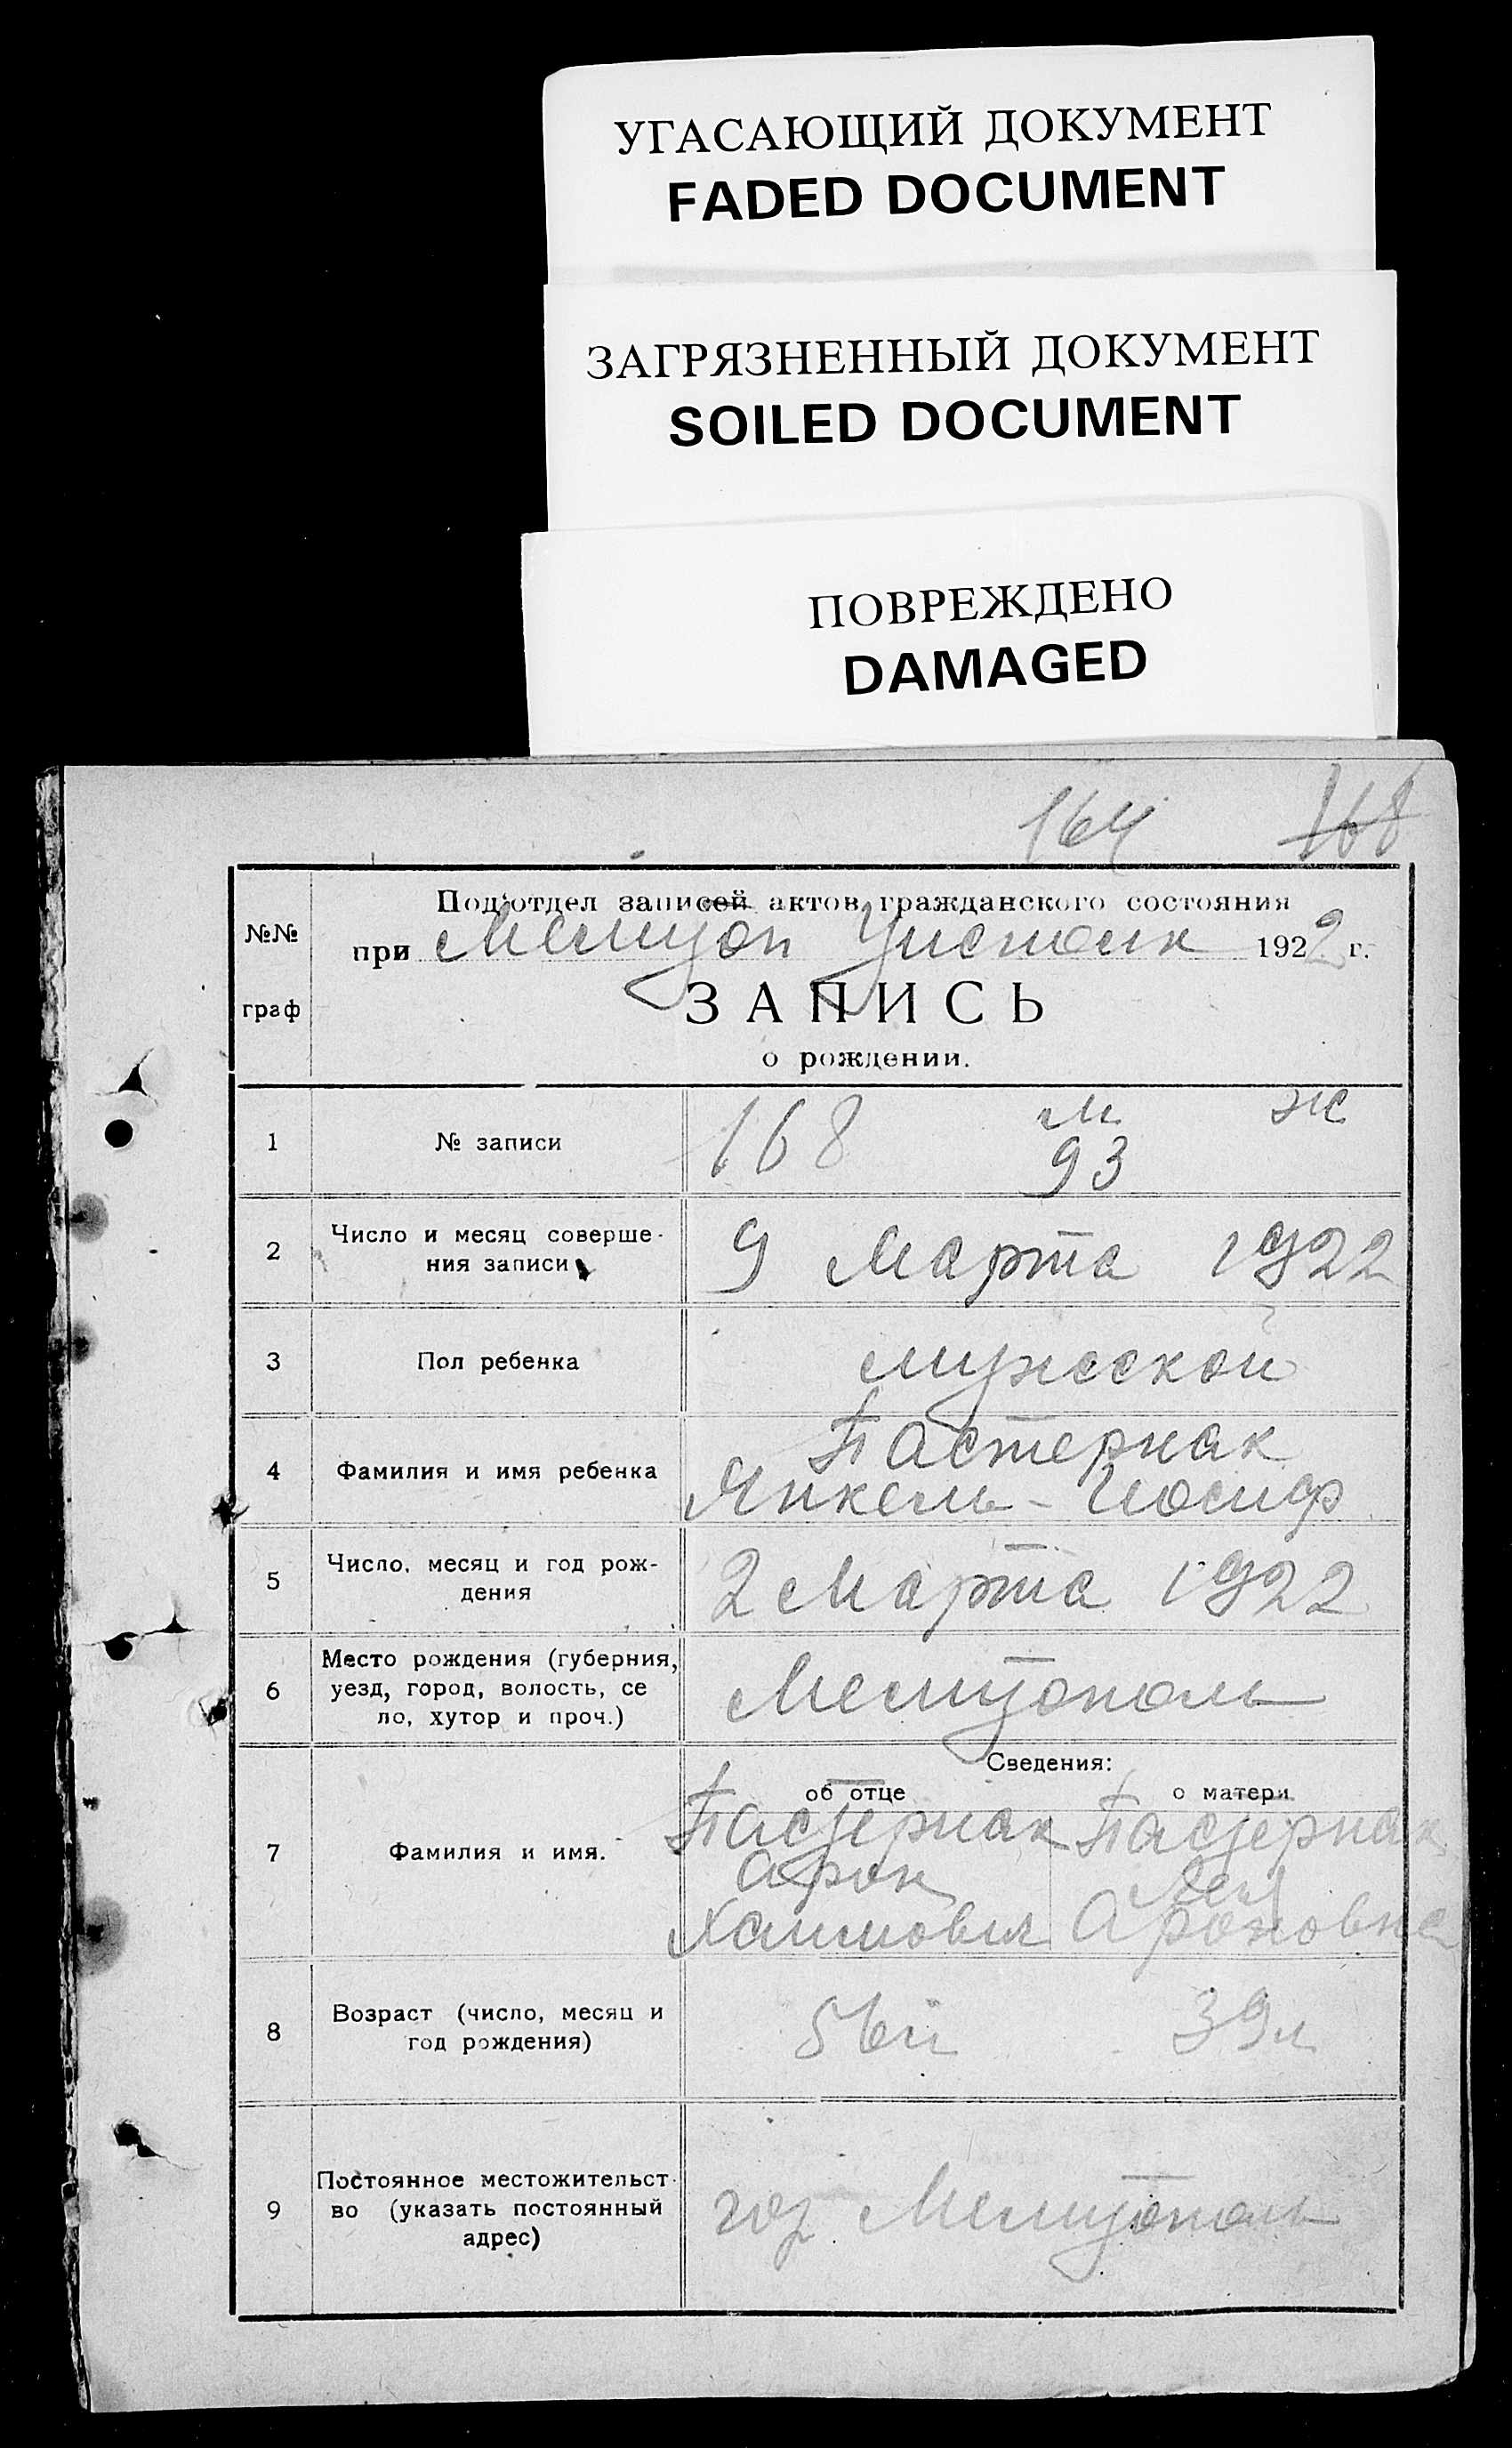 УГАСАЮЩИЙ ДОКУМЕНТ
FADED DOCUMENT
ЗАГРЯЗНЕННЫЙ ДОКУМЕНТ
SOILED DOCUMENT
ПОВРЕЖДЕНО
DAMAGED
164 168
Под'отдел записей актов гражданского состояния
№№
при Мелитоп 1922 г.
граф
ЗАПИСЬ
о рождении.
м ж
1 № записи 168
93
Число и месяц соверше-
2 9 Марта 1922
ния записи
3 Пол ребенка мужской
Пастернак
4 Фамилия и имя ребенка
Янкель - Иосиф
Число, месяц и год рож-
5 2 Марта 1922
дения
Место рождения (губерния,
6 уезд, город, волость, се Мелитополь
ло, хутор и проч.)
Сведения:
об отце о матери
Пастернак Пастернак
7 Фамилия и имя.
Арон Лея
Хаимович Ароновна
Возраст (число, месяц и
8 56 л 39 л
год рождения)
Постоянное местожительст-
9 во (указать постоянный гор Мелитополь
адрес)